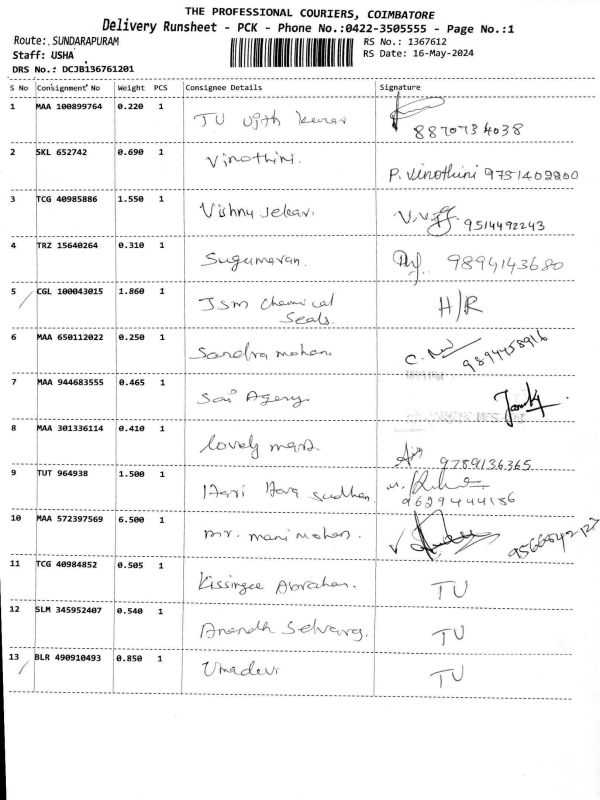 THE PROFESSIONAL COURIERS, COIMBATORE
Delivery Runsheet - PCK - Phone No.:0422-3505555 - Page No.:1
Route:. SUNDARAPURAM RS No.: 1367612
Staff: USHA RS Date: 16-May-2024
DRS No.: DCJB136761201
S No Consignment No Weight PCS Consignee Details Signature
1 MAA 100899764 0.220 1 TU
8870734038
2 SKL 652742 0.690 1 Vinothini.
P. Vinothini 9751402200
3 TCG 40985886 1.550 1 Vishnu Jekar.
9514492243
4 TRZ 15640264 0.310 1 Sugumaran. 9894143680
5 CGL 100043015 1.860 1 Jsm Chemical H/R
Seals.
6 MAA 650112022 0.250 1 Sandra mohan. 9894458916
7 MAA 944683555 0.465 1 Sai Agency
8 MAA 301336114 0.410 1 lovely mars. 9789136365
9 TUT 964938 1.500 1 Hari Hara Sudhan
9629444186
10 MAA 572397569 6.500 1 mr. mani mohan.
11 TCG 40984852 0.505 1 Abraham. TU
12 SLM 345952407 0.540 1 Anandh Selvaraj. TU
13 BLR 490910493 0.850 1 Umadevi TU